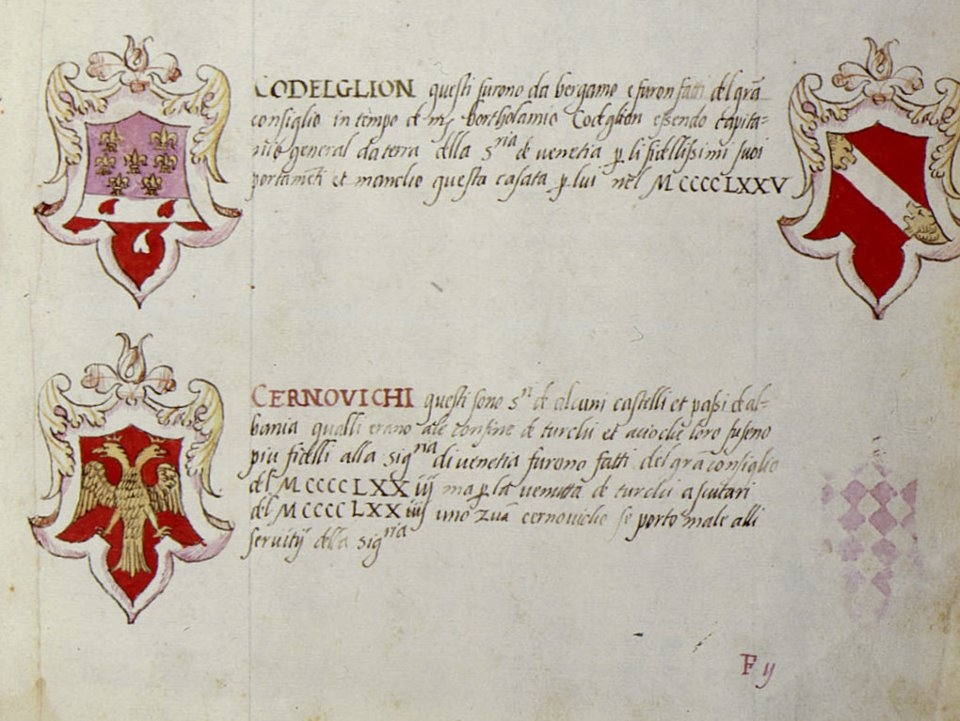 CODELGLION questi furono da bergamo e furon fatti del grā
consiglio in tempo de mſ bertholamio Codeglion essendo capita-
nio general da terra della Sria de venetia p li fidellissimi suoi
portamēti et manchò questa casata p lui nel MCCCCLXXV
CERNOVICHI questi sono Sri de alcuni castelli et passi de al-
bania qualli erano ale confine de turchi et acioche loro fuseno
piu fidelli alla signria di venetia furono fatti del grā consiglio
del MCCCCLXXiij ma p la venutta de turchi a scutari
del MCCCCLXXiiij uno zuā cernovichio se porto male alli
servitij della signria
F ij